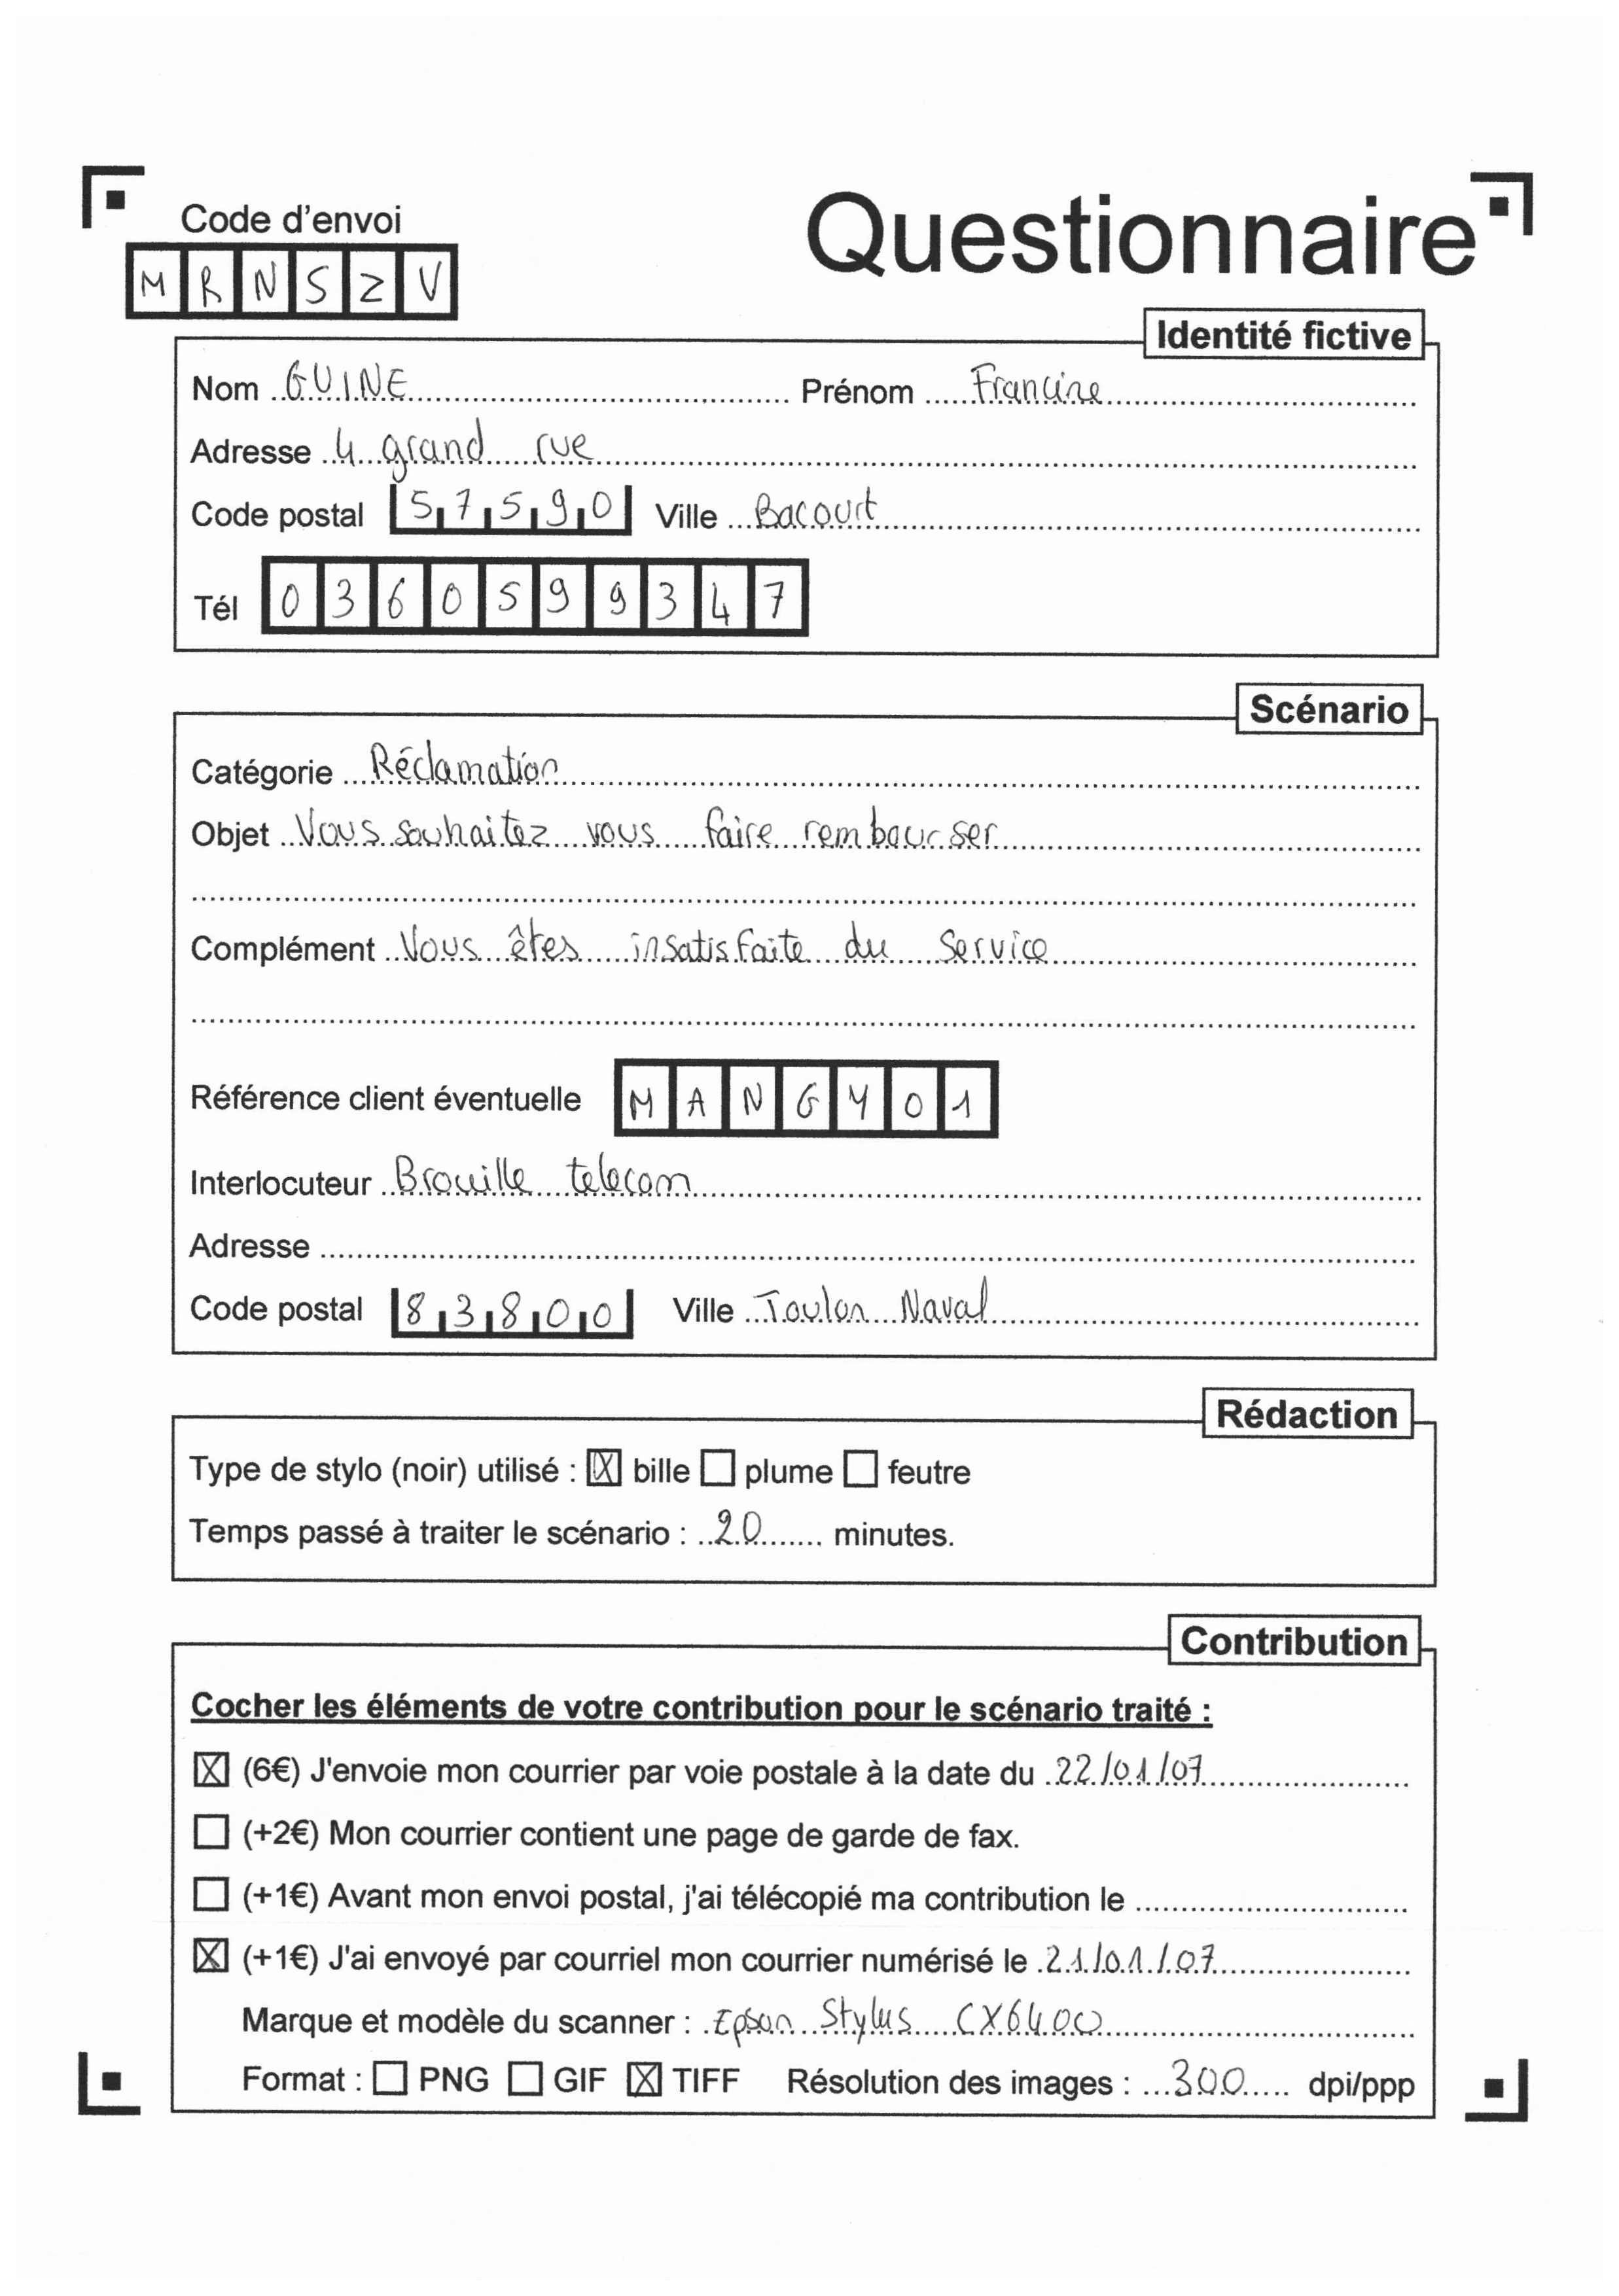 Code d'envoi
Questionnaire
M R N S Z V
Identité fictive
Nom GUINE Prénom Francine
Adresse 4 grand rue
Code postal 57590 Ville Bacourt
Tél 0360599347
Scénario
Catégorie Réclamation
Objet Vous souhaitez vous faire rembourser
Complément Vous êtes insatisfaite du service
Référence client éventuelle MANGY01
Interlocuteur Brouille telecom
Adresse
Code postal 83800 Ville Toulon Naval
Rédaction
Type de stylo (noir) utilisé : ☒ bille ☐ plume ☐ feutre
Temps passé à traiter le scénario : 20 minutes.
Contribution
Cocher les éléments de votre contribution pour le scénario traité :
☒ (6€) J'envoie mon courrier par voie postale à la date du 22/01/07
☐ (+2€) Mon courrier contient une page de garde de fax.
☐ (+1€) Avant mon envoi postal, j'ai télécopié ma contribution le
☒ (+1€) J'ai envoyé par courriel mon courrier numérisé le 21/01/07
Marque et modèle du scanner : Epson Stylus CX6400
Format : ☐ PNG ☐ GIF ☒ TIFF Résolution des images : 300 dpi/ppp